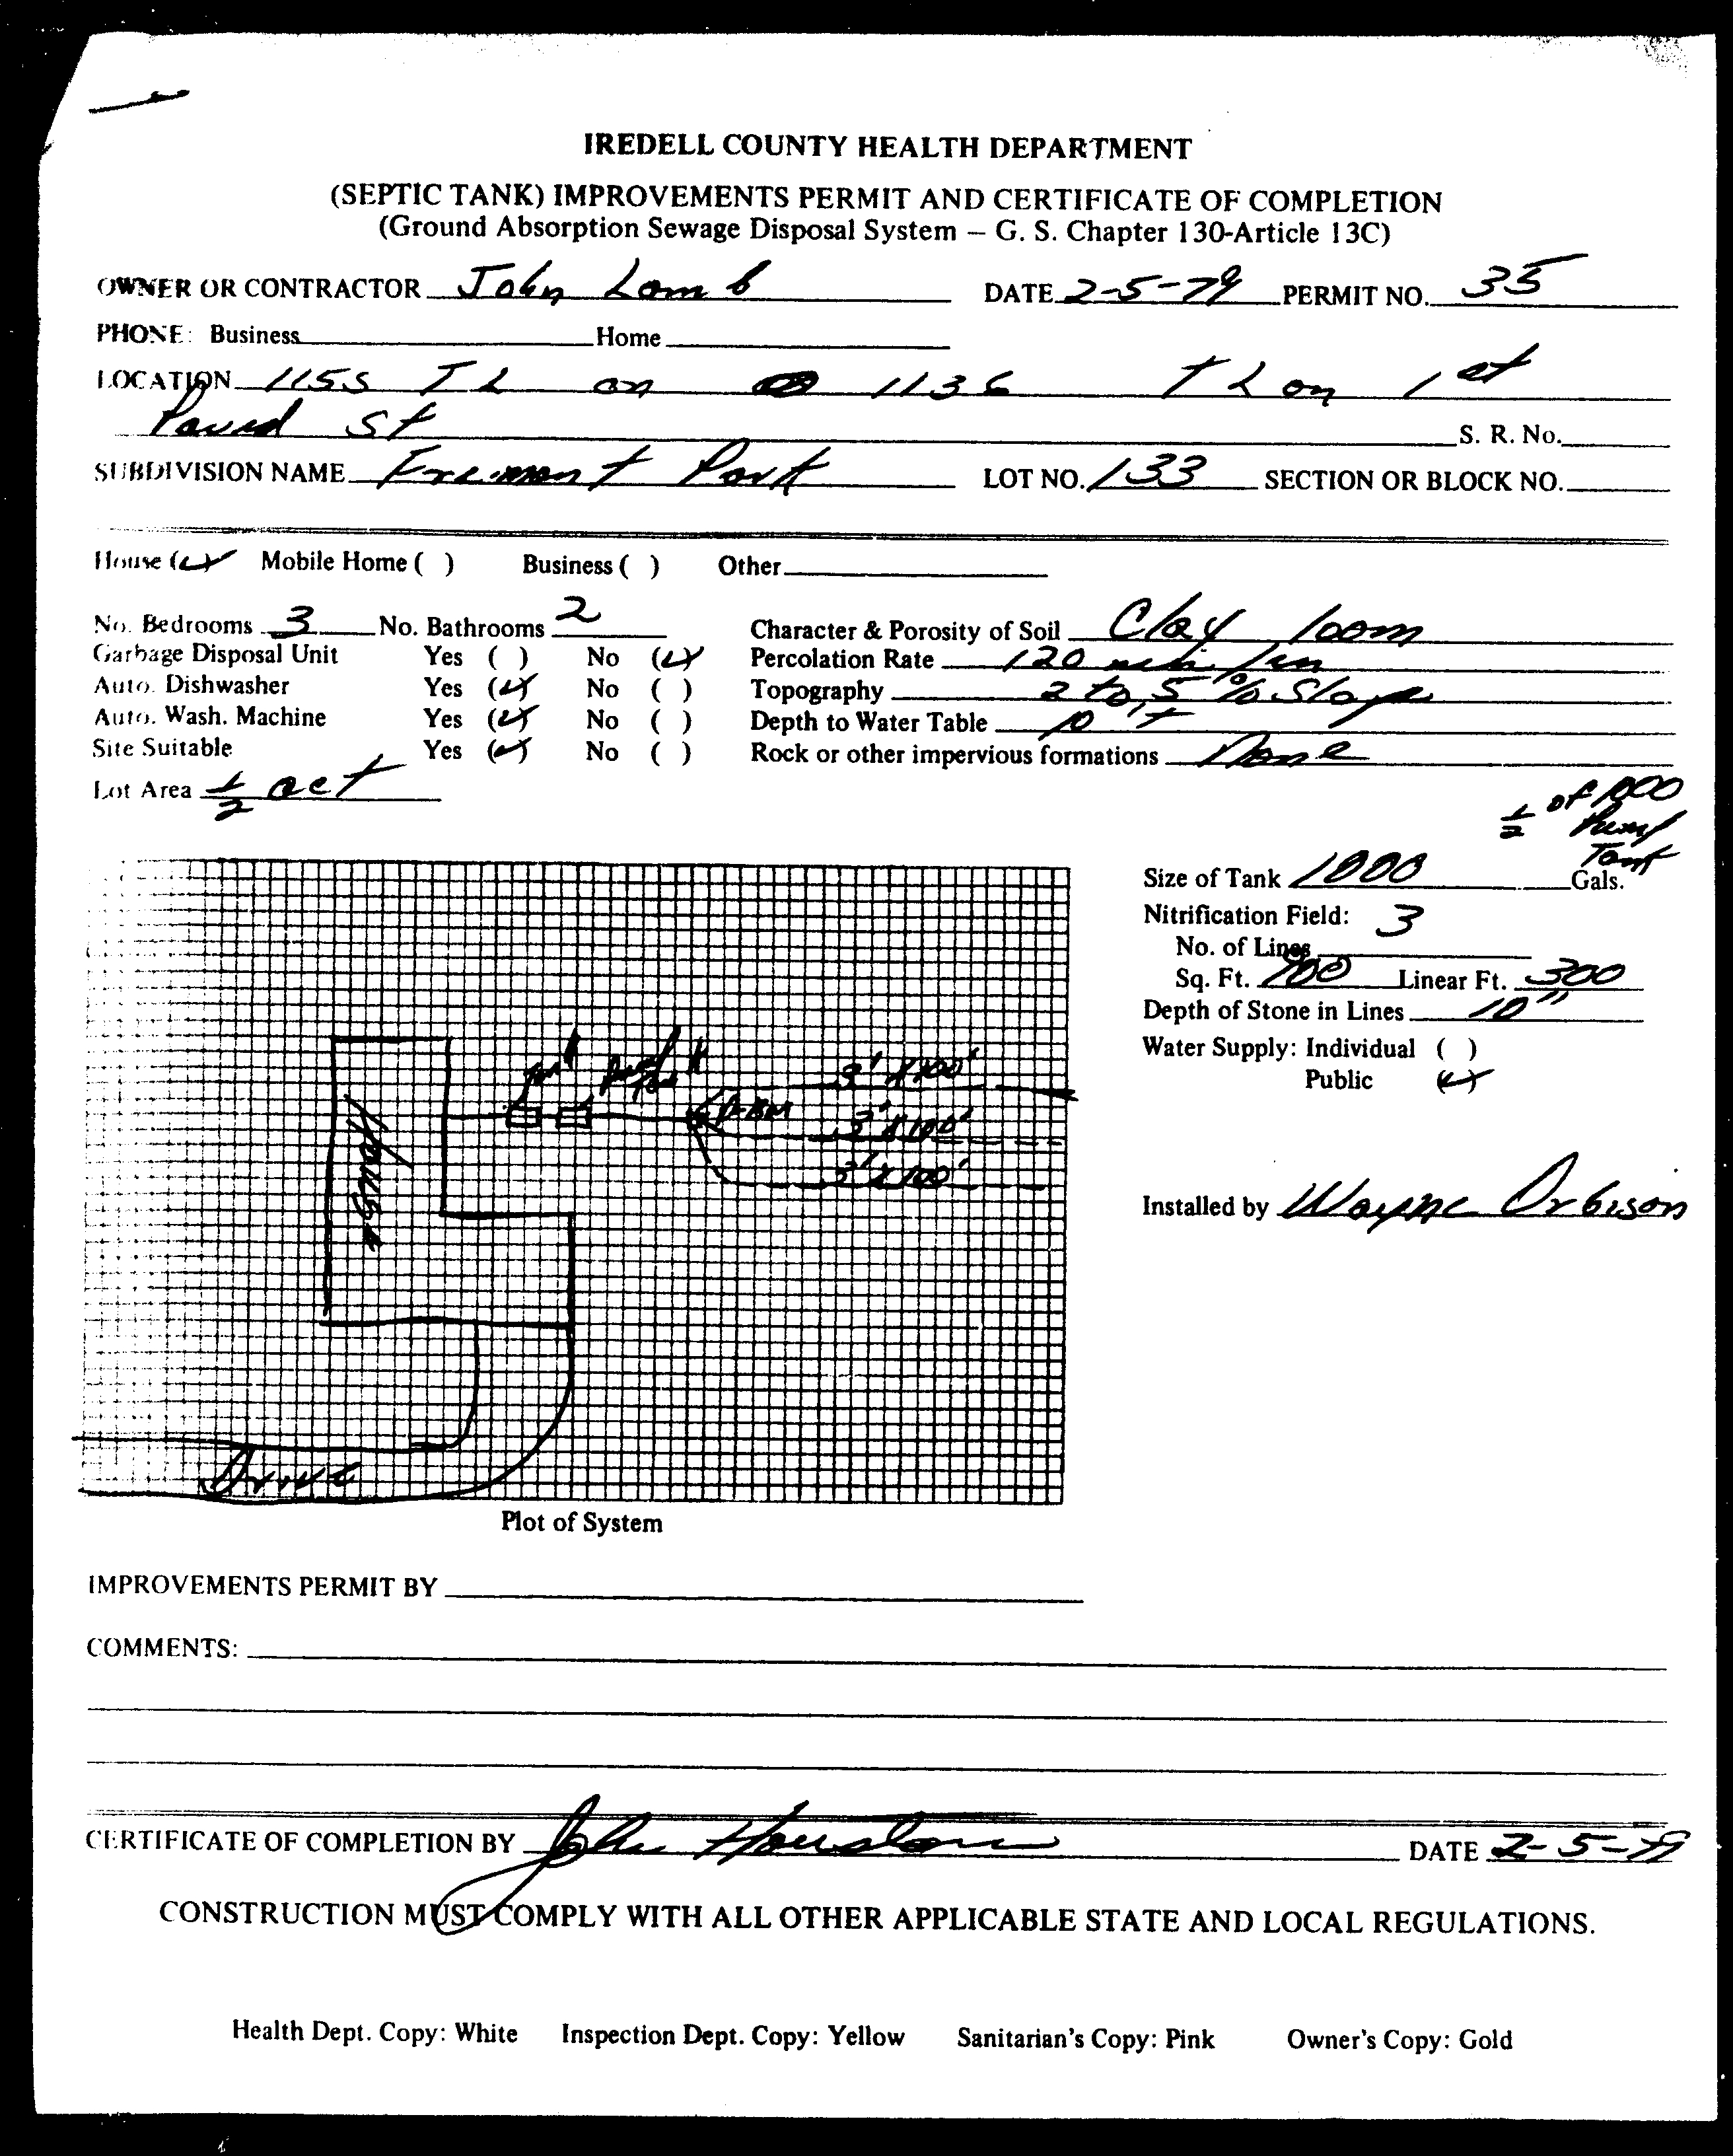 IREDELL COUNTY HEALTH DEPARTMENT
(SEPTIC TANK) IMPROVEMENTS PERMIT AND CERTIFICATE OF COMPLETION
(Ground Absorption Sewage Disposal System – G. S. Chapter 130-Article 13C)
OWNER OR CONTRACTOR John Lomb DATE 2-5-79 PERMIT NO. 35
PHONE: Business Home
LOCATION 1155 T L on 1136 T L on 1st
Paved St S. R. No.
SUBDIVISION NAME Fremont Park LOT NO. 133 SECTION OR BLOCK NO.
House (✓) Mobile Home ( ) Business ( ) Other
No. Bedrooms 3 No. Bathrooms 2 Character & Porosity of Soil Clay loom
Garbage Disposal Unit Yes ( ) No (✓) Percolation Rate 120 min/in
Auto. Dishwasher Yes (✓) No ( ) Topography 2 to 5 % Slope
Auto. Wash. Machine Yes (✓) No ( ) Depth to Water Table 10'+
Site Suitable Yes (✓) No ( ) Rock or other impervious formations None
Lot Area 1/2 act
1/2 of 1000
Pump
Tank
Size of Tank 1000 Gals.
Nitrification Field: 3
No. of Lines
Sq. Ft. 900 Linear Ft. 300
Depth of Stone in Lines 10"
Water Supply: Individual ( )
Public (✓)
Installed by Wayne Orbison
Tank Pump Tank
3' X 100'
3' X 100'
3' X 100'
House
Drive
Plot of System
IMPROVEMENTS PERMIT BY
COMMENTS:
CERTIFICATE OF COMPLETION BY John Houston DATE 2-5-79
CONSTRUCTION MUST COMPLY WITH ALL OTHER APPLICABLE STATE AND LOCAL REGULATIONS.
Health Dept. Copy: White Inspection Dept. Copy: Yellow Sanitarian's Copy: Pink Owner's Copy: Gold